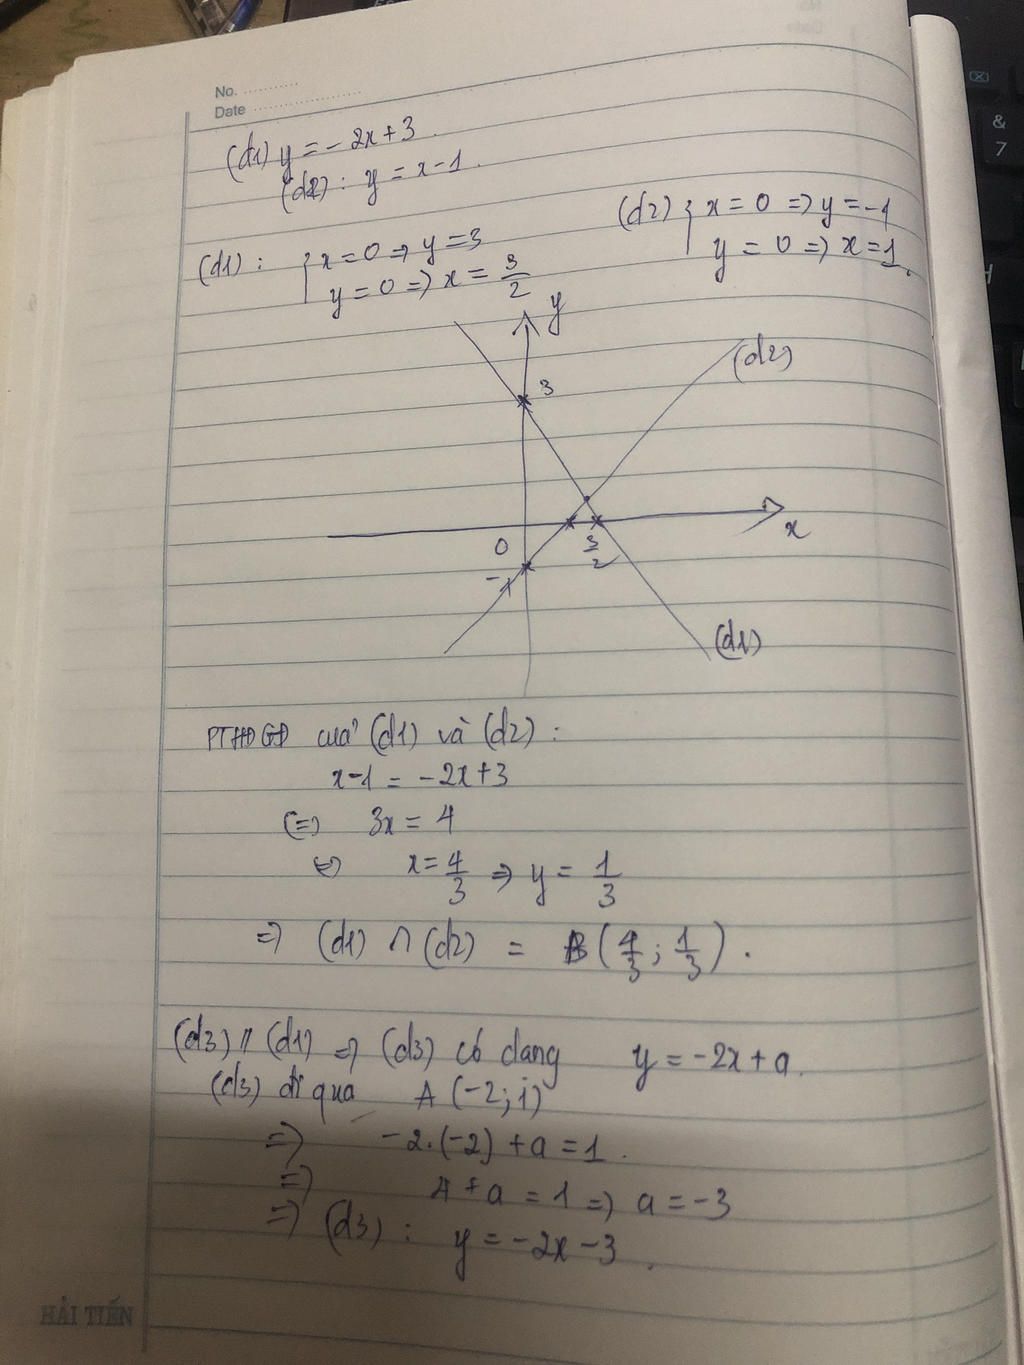 No. ............
Date ........................
(d1) y = -2x+3.
(d2): y = x-1.
(d1): { x = 0 => y = 3
y = 0 => x = 3/2
(d2) { x = 0 => y = -1
y = 0 => x = 1.
y
(d2)
3
0
3/2
x
-1
(d1)
PTHĐGĐ của (d1) và (d2):
x-1 = -2x+3
<=> 3x = 4
<=> x = 4/3 => y = 1/3
=> (d1) ∩ (d2) = B (4/3; 1/3).
(d3) // (d1) => (d3) có dang y = -2x + a.
(d3) đi qua A (-2; 1)
=> -2.(-2) + a = 1.
=> 4 + a = 1 => a = -3
=> (d3): y = -2x - 3.
HẢI TIẾN